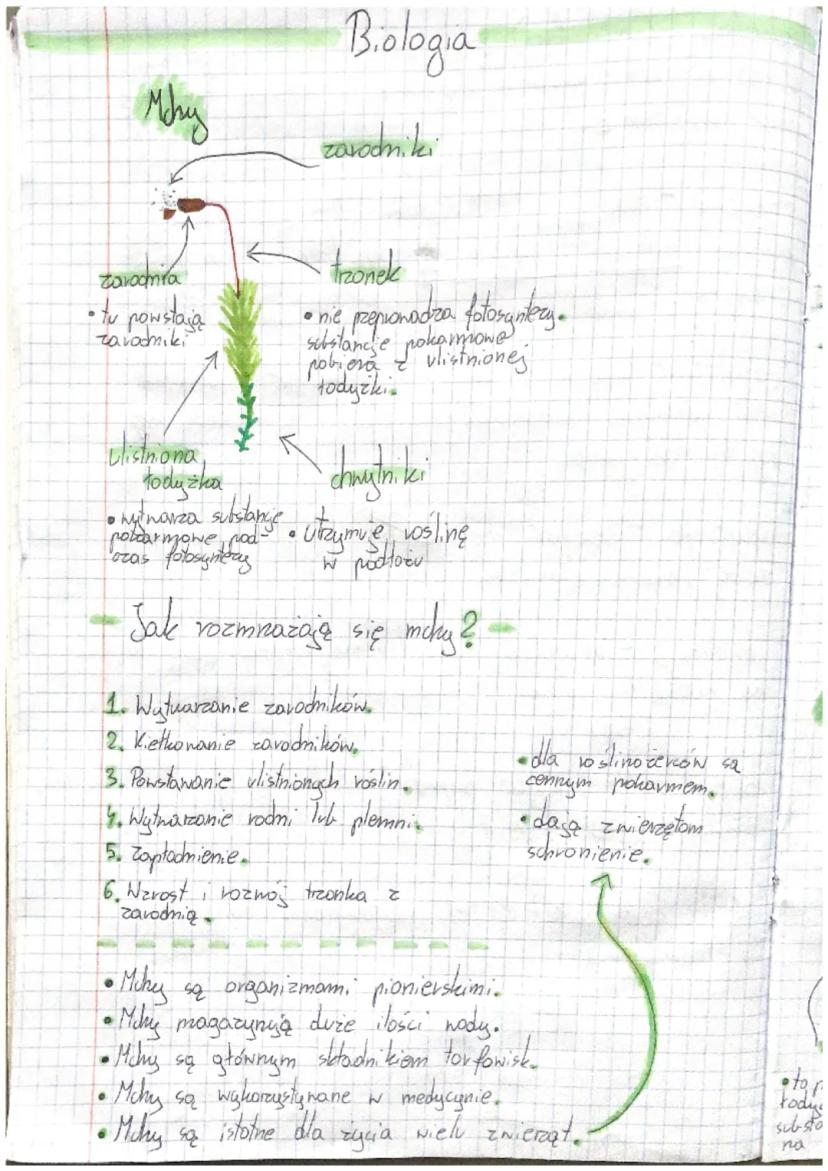 Biologia
Mchy
zarodniki
zarodnia
• tu powstają
zarodniki
trzonek
• nie przeprowadza fotosyntezy.
substancje pokarmowe
pobiera z ulistnionej
łodyżki.
ulistniona
łodyżka
• wytwarza substancje
pokarmowe pod-
czas fotosyntezy
chwytniki
• utrzymuje roślinę
w podłożu
Jak rozmnażają się mchy?
1. Wytwarzanie zarodników.
2. Kiełkowanie zarodników.
3. Powstawanie ulistnionych roślin.
4. Wytwarzanie rodni lub plemni.
5. Zapłodnienie.
6. Wzrost i rozwój trzonka z
zarodnią.
• dla roślinożerców są
cennym pokarmem.
• dają zwierzętom
schronienie.
• Mchy są organizmami pionierskimi.
• Mchy magazynują duże ilości wody.
• Mchy są głównym składnikiem torfowisk.
• Mchy są wykorzystywane w medycynie.
• Mchy są istotne dla życia wielu zwierząt.